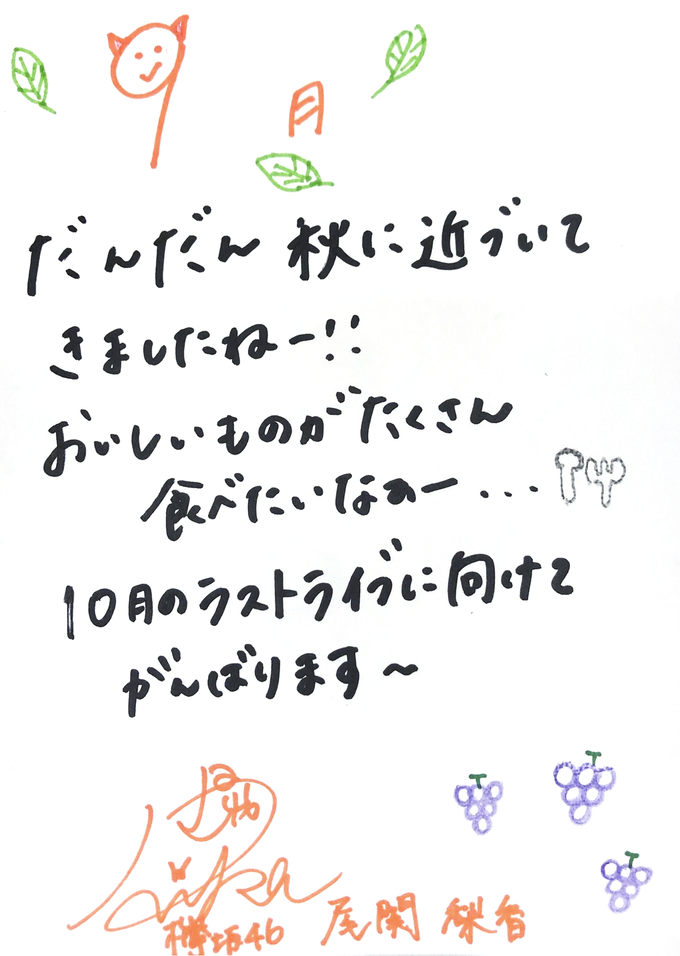 9月
だんだん 秋に近づいて
きましたねー!!
おいしいものがたくさん
食べたいなぁー...
10月のラストライブに向けて
がんばります〜
欅坂46 尾関 梨香